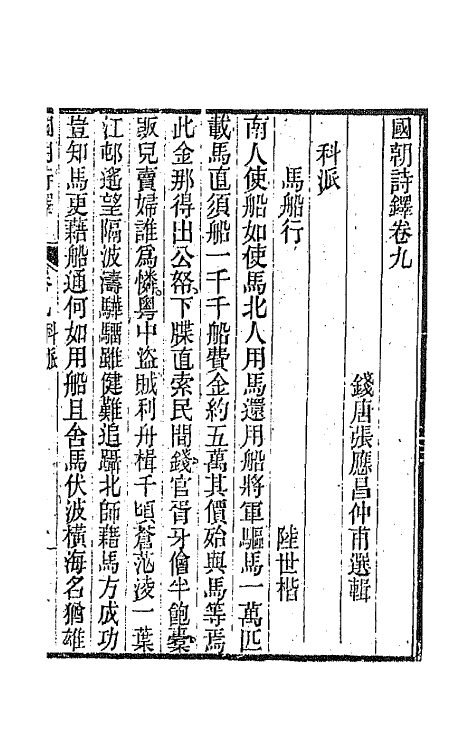 國朝詩鐸卷九
錢唐張應昌仲甫選輯
科派
馬船行 陸世楷
南人使船如使馬北人用馬還用船將軍驅馬一萬匹
載馬直須船一千千船費金約五萬其價始與馬等焉
此金那得出公帑下牒直索民間錢官胥牙儈半飽橐
販兒賣婦誰爲憐粵中盜賊利舟楫千頃蒼茫淩一葉
江邨遙望隔波濤驊騮雖健難追躡北師藉馬方成功
豈知馬更藉船通何如用船且舍馬伏波橫海名猶雄
國朝詩鐸 卷九科派 一